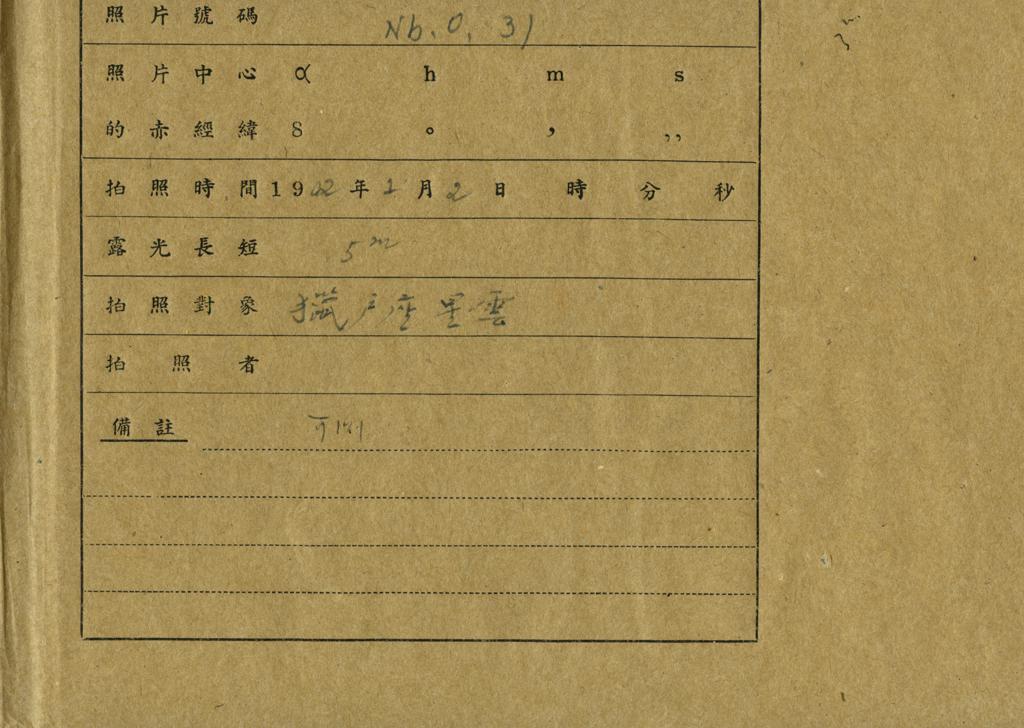 照片號碼 Nb. 0. 31
照片中心 α h m s
的赤經緯 δ ° ′ ″
拍照時間 1902年2月2日 時 分 秒
露光長短 5m
拍照對象 獵戶座星雲
拍照者
備註